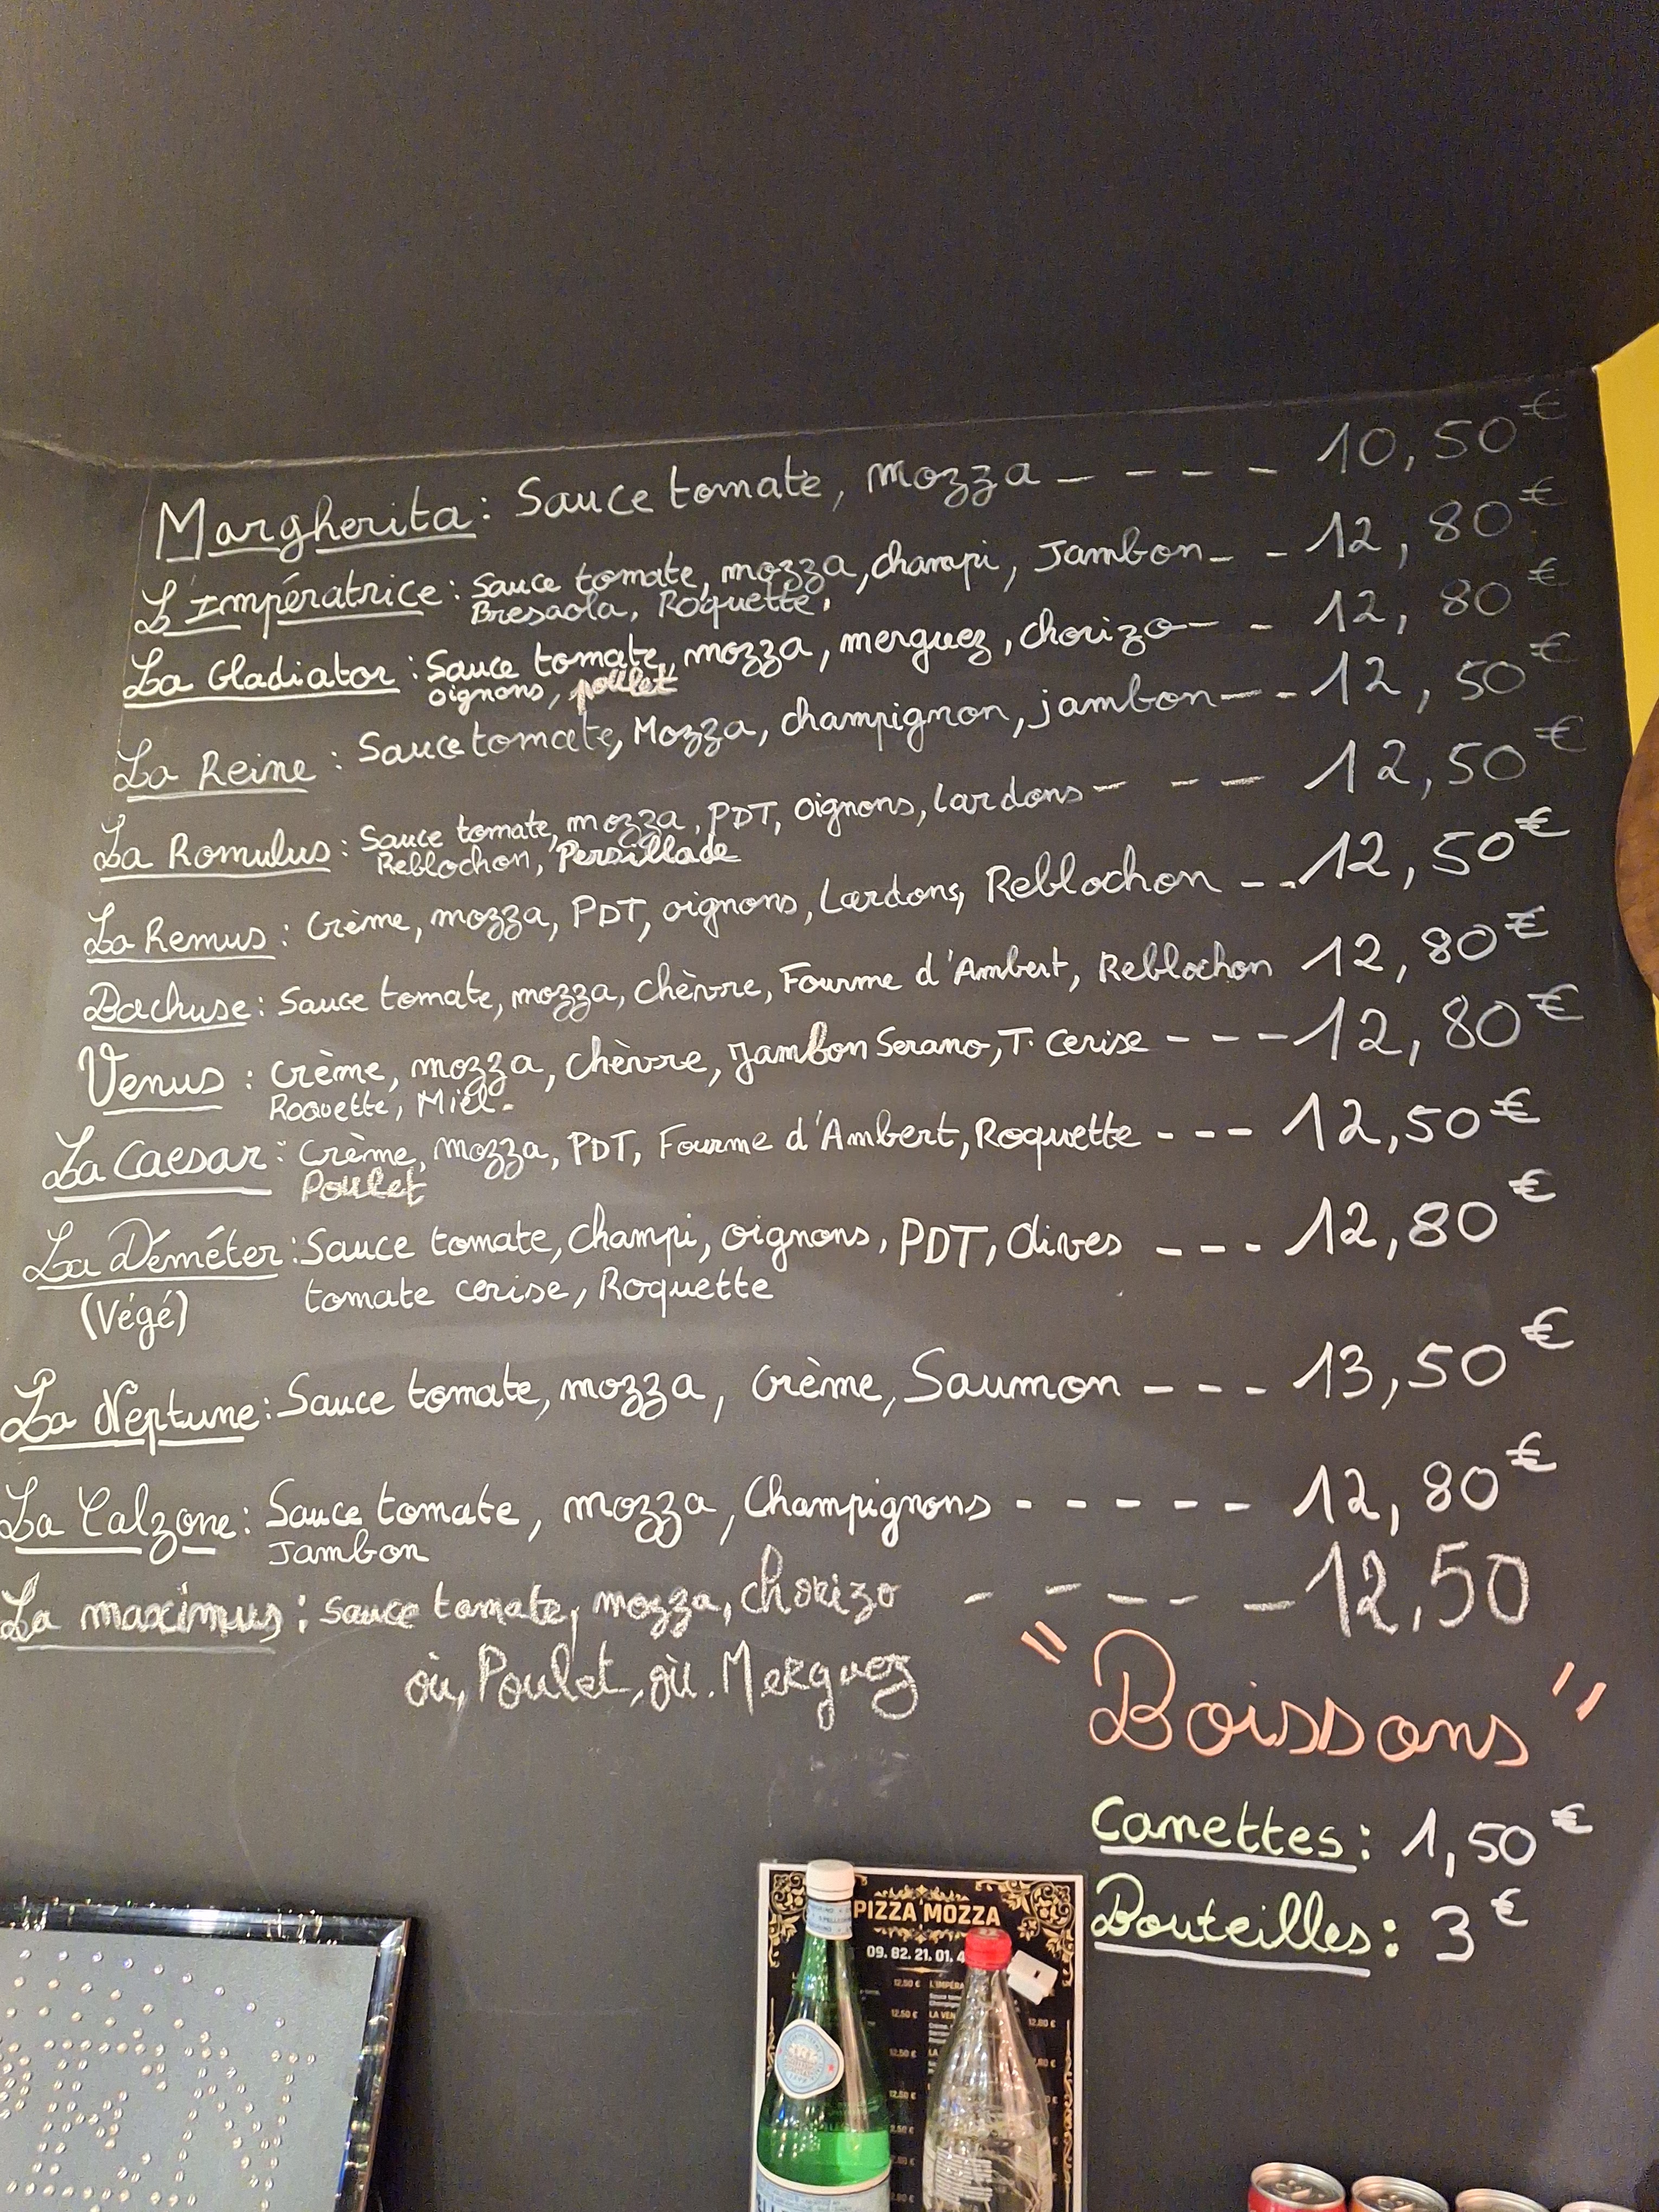 Margherita : Sauce tomate, mozza - - - - 10,50€
L'Impératrice : Sauce tomate, mozza, champi, Jambon - - 12,80€
Bresaola, Roquette.
La Gladiator : Sauce tomate, mozza, merguez, chorizo - - 12,80€
oignons, poulet
La Reine : Sauce tomate, Mozza, champignon, jambon - - 12,50€
La Romulus : Sauce tomate, mozza, PDT, oignons, Lardons - - - 12,50€
Reblochon, Persillade
La Remus : Crème, mozza, PDT, oignons, Lardons, Reblochon - - 12,50€
Bachuse : Sauce tomate, mozza, chèvre, Fourme d'Ambert, Reblochon 12,80€
Venus : Crème, mozza, chèvre, Jambon Serano, T. cerise - - - 12,80€
Roquette, Miel.
La Caesar : Crème, mozza, PDT, Fourme d'Ambert, Roquette - - - 12,50€
Poulet
La Déméter : Sauce tomate, champi, oignons, PDT, Olives - - - 12,80€
(Végé) tomate cerise, Roquette
La Neptune : Sauce tomate, mozza, crème, Saumon - - - 13,50€
La Calzone : Sauce tomate, mozza, Champignons - - - - - 12,80€
Jambon
La maximus : sauce tomate, mozza, chorizo - - - - - 12,50
où, Poulet, où. Merguez
"Boissons"
Canettes : 1,50€
Bouteilles : 3€
PIZZA MOZZA
09. 82. 21. 01.
12,50 €
12,50 €
LA VEN